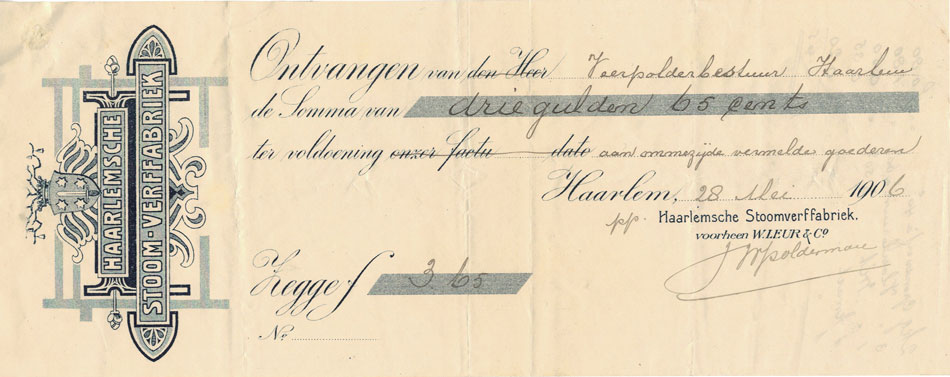 HAARLEMSCHE
STOOM-VERFFABRIEK
Ontvangen van den Heer Veerpolderbestuur Haarlem
de Somma van drie gulden 65 cents
ter voldoening onzer factu dato aan ommezijde vermelde goederen
Haarlem, 28 Mei 1906
pp. Haarlemsche Stoomverffabriek.
voorheen W. LEUR & Co
Zegge f 3 65
No.